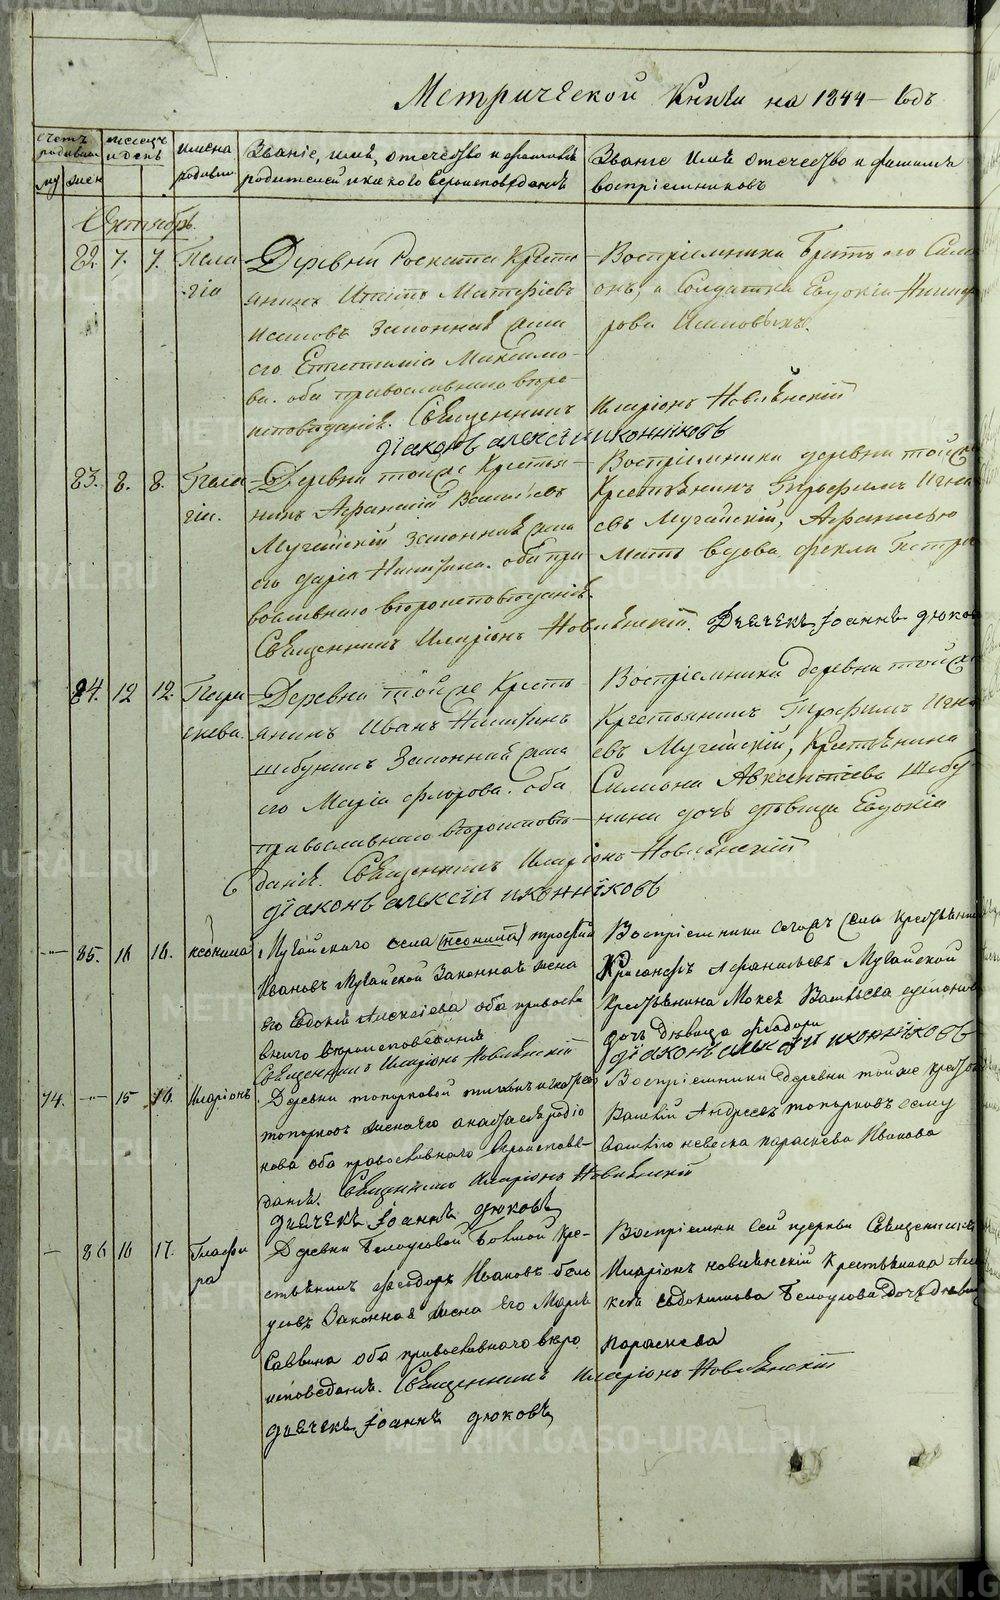 METRIKI.GASO-URAL.RU
Метрической Книги на 1844 – Годъ
счетъ родивши
муж жен
месецъ и день
имена родивши
Званіе, имя, отечество и фамилія родителей и какого вероисповеданія
Званіе имя отечество и фамилія воспріемниковъ
Октябрь
82. 7. 7. Пелагіи
Деревни Роската Кресть
янинъ Матфіевъ
Исаковъ Законная жена
его Максимо
ва. оба православнаго веро
исповѣданія. Священникъ Иларіонъ Новлянскій
Воспріемники Братъ его Семі
онъ, а Солдатка Евдокія Никифо
рова Исаковыхъ.
діаконъ алексій иконниковъ
83. 8. 8. Пелагіи.
Деревни той же Крестья
нинъ Афанасій Васильевъ
Мугайскій законная жена
его Дарія Никитина. оба пра
вославнаго вѣроисповѣданія.
Священникъ Иларіонъ Новлянскій. Дьячекъ Іоаннъ дюковъ
Воспріемники деревни той же
Крестьянинъ Трофимъ Игна
евъ Мугайскій, Афанасью
мать вдова Фекла Петро
84. 12 12. Параскева.
Деревни той же Кресть
янинъ Иванъ Никитинъ
Шабунинъ Законная жена
его Марія Флорова. оба
православнаго вѣроисповѣ
данія. Священникъ Иларіонъ Новлянскій
діаконъ алексій иконниковъ
Воспріемники деревни той же
Крестьянинъ Трофимъ Игна
евъ Мугайскій, Крестьянина
Симиона Авксентіева Шабу
нина дочь дѣвица Евдокія
85. 16 16. ксѳнина
Мугайскаго села трофим
Ивановъ Мугайской Законная жена
Его Евдокія Алексіева оба правосла
внаго вероисповеданія
Священникъ Иларіонъ Новлянскій
Воспріемники сегожъ Села крестьянинъ
Крисанфъ Афанасьевъ Мугайской
крестьянина Мокея Васильева
дочь Девица Феодора
діаконъ алексій иконниковъ
74. 15 16. Иларіонъ
Деревни топорковой
топорковъ жена его анастасія родіо
нова оба православнаго вероиспове
данія. Священникъ Иларіонъ Новлянскій
дьячекъ Іоаннъ дюковъ
Воспріемники деревни той же крестьян
Василій Андреевъ топорковъ ему
Василію невеска параскева Иванова
86 16 17. Глафира
Деревни Белоусовой Большой Кре
стьянинъ Феодоръ Ивановъ бело
усовъ Законная жена Его Марія
Саввина оба православнаго веро
исповеданія. Священникъ Иларіонъ Новлянскій
дьячекъ Іоаннъ дюковъ
Воспріемник Сей церкви Священникъ
Иларіонъ новлянскій Крестьянина Але
ксея Евдокимова Белоусова дочь девица
параскева